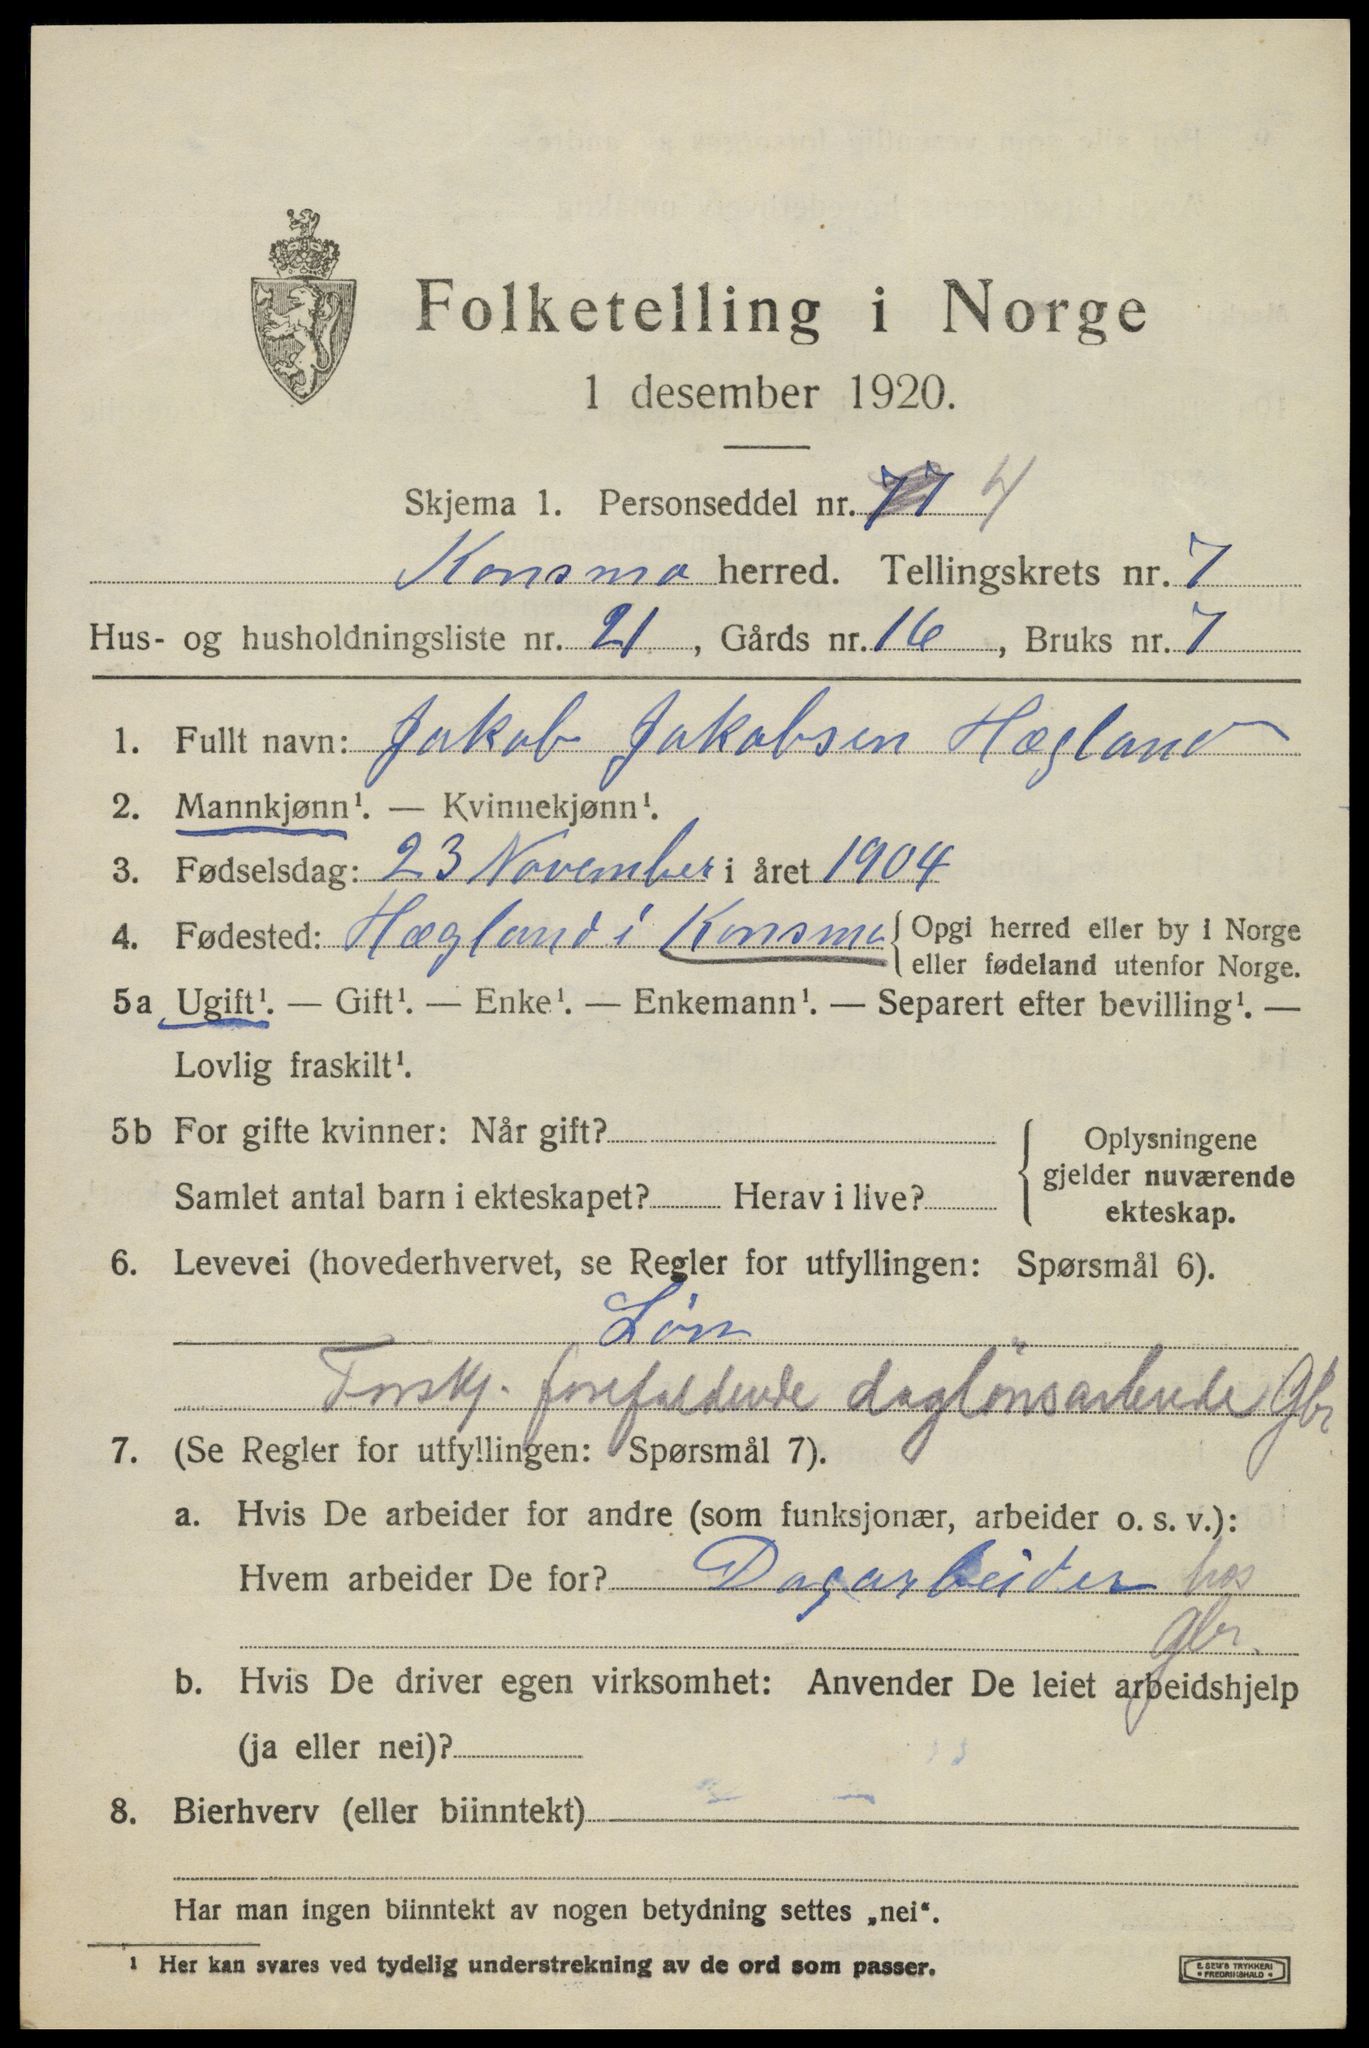 Folketelling i Norge
1 desember 1920.
Skjema 1. Personseddel nr. 77 4
Konsmo herred. Tellingskrets nr. 7
Hus- og husholdningsliste nr. 21, Gårds nr. 16, Bruks nr. 7
1. Fullt navn: Jakob Jakobsen Hægland
2. Mannkjønn¹. — Kvinnekjønn¹.
3. Fødselsdag: 23 November i året 1904
4. Fødested: Hægland i Konsmo { Opgi herred eller by i Norge
eller fødeland utenfor Norge.
5a Ugift¹. — Gift¹. — Enke¹. — Enkemann¹. — Separert efter bevilling¹. —
Lovlig fraskilt¹.
5b For gifte kvinner: Når gift?
Samlet antal barn i ekteskapet? Herav i live?
{ Oplysningene
gjelder nuværende
ekteskap.
6. Levevei (hovederhvervet, se Regler for utfyllingen: Spørsmål 6).
Lön
Forskj. forefaldende daglönsarbeide Gbr
7. (Se Regler for utfyllingen: Spørsmål 7).
a. Hvis De arbeider for andre (som funksjonær, arbeider o. s. v.):
Hvem arbeider De for? Dagarbeider hos
Gbr.
b. Hvis De driver egen virksomhet: Anvender De leiet arbeidshjelp
(ja eller nei)?
8. Bierhverv (eller biinntekt)
Har man ingen biinntekt av nogen betydning settes „nei“.
¹ Her kan svares ved tydelig understrekning av de ord som passer.
E. SEM'S TRYKKERI
• FREDRIKSHALD •